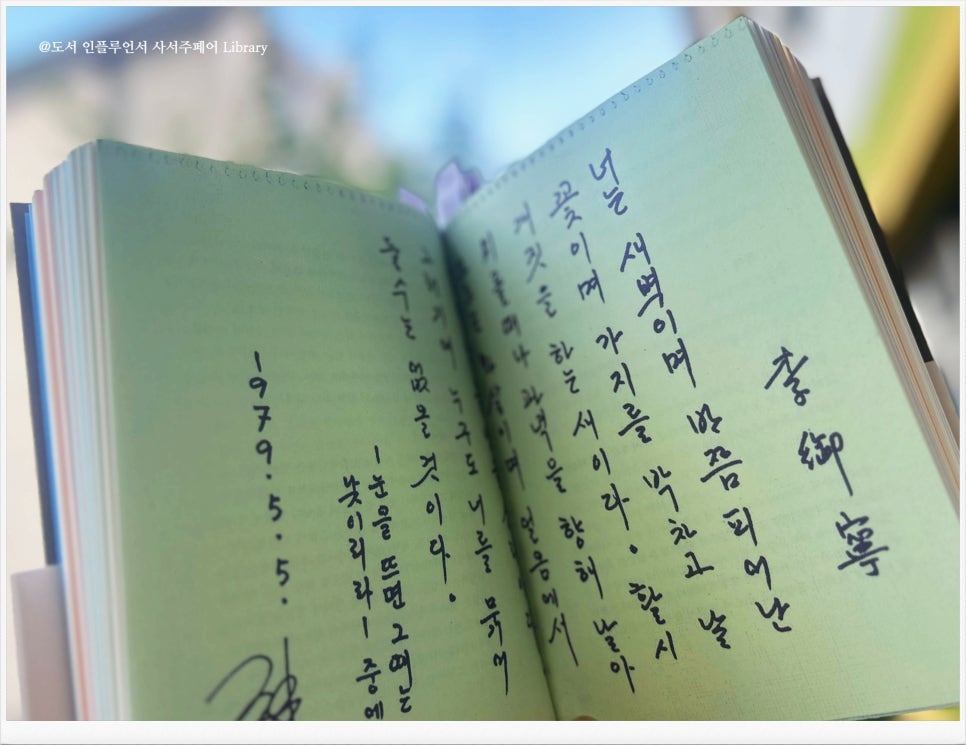 @도서 인플루언서 사서주페어 Library
李御寧
너는 새벽이며 반쯤 피어난
꽃이며 가지를 박차고 날
개짓을 하는 새이다. 활시
위를 떠나 과녁을 향해 날아
살이며 얼음에서
누구도 너를 묶어
둘 수는 없을 것이다.
―눈을 뜨면 그때는
낮이리라― 중에
1979. 5. 5.